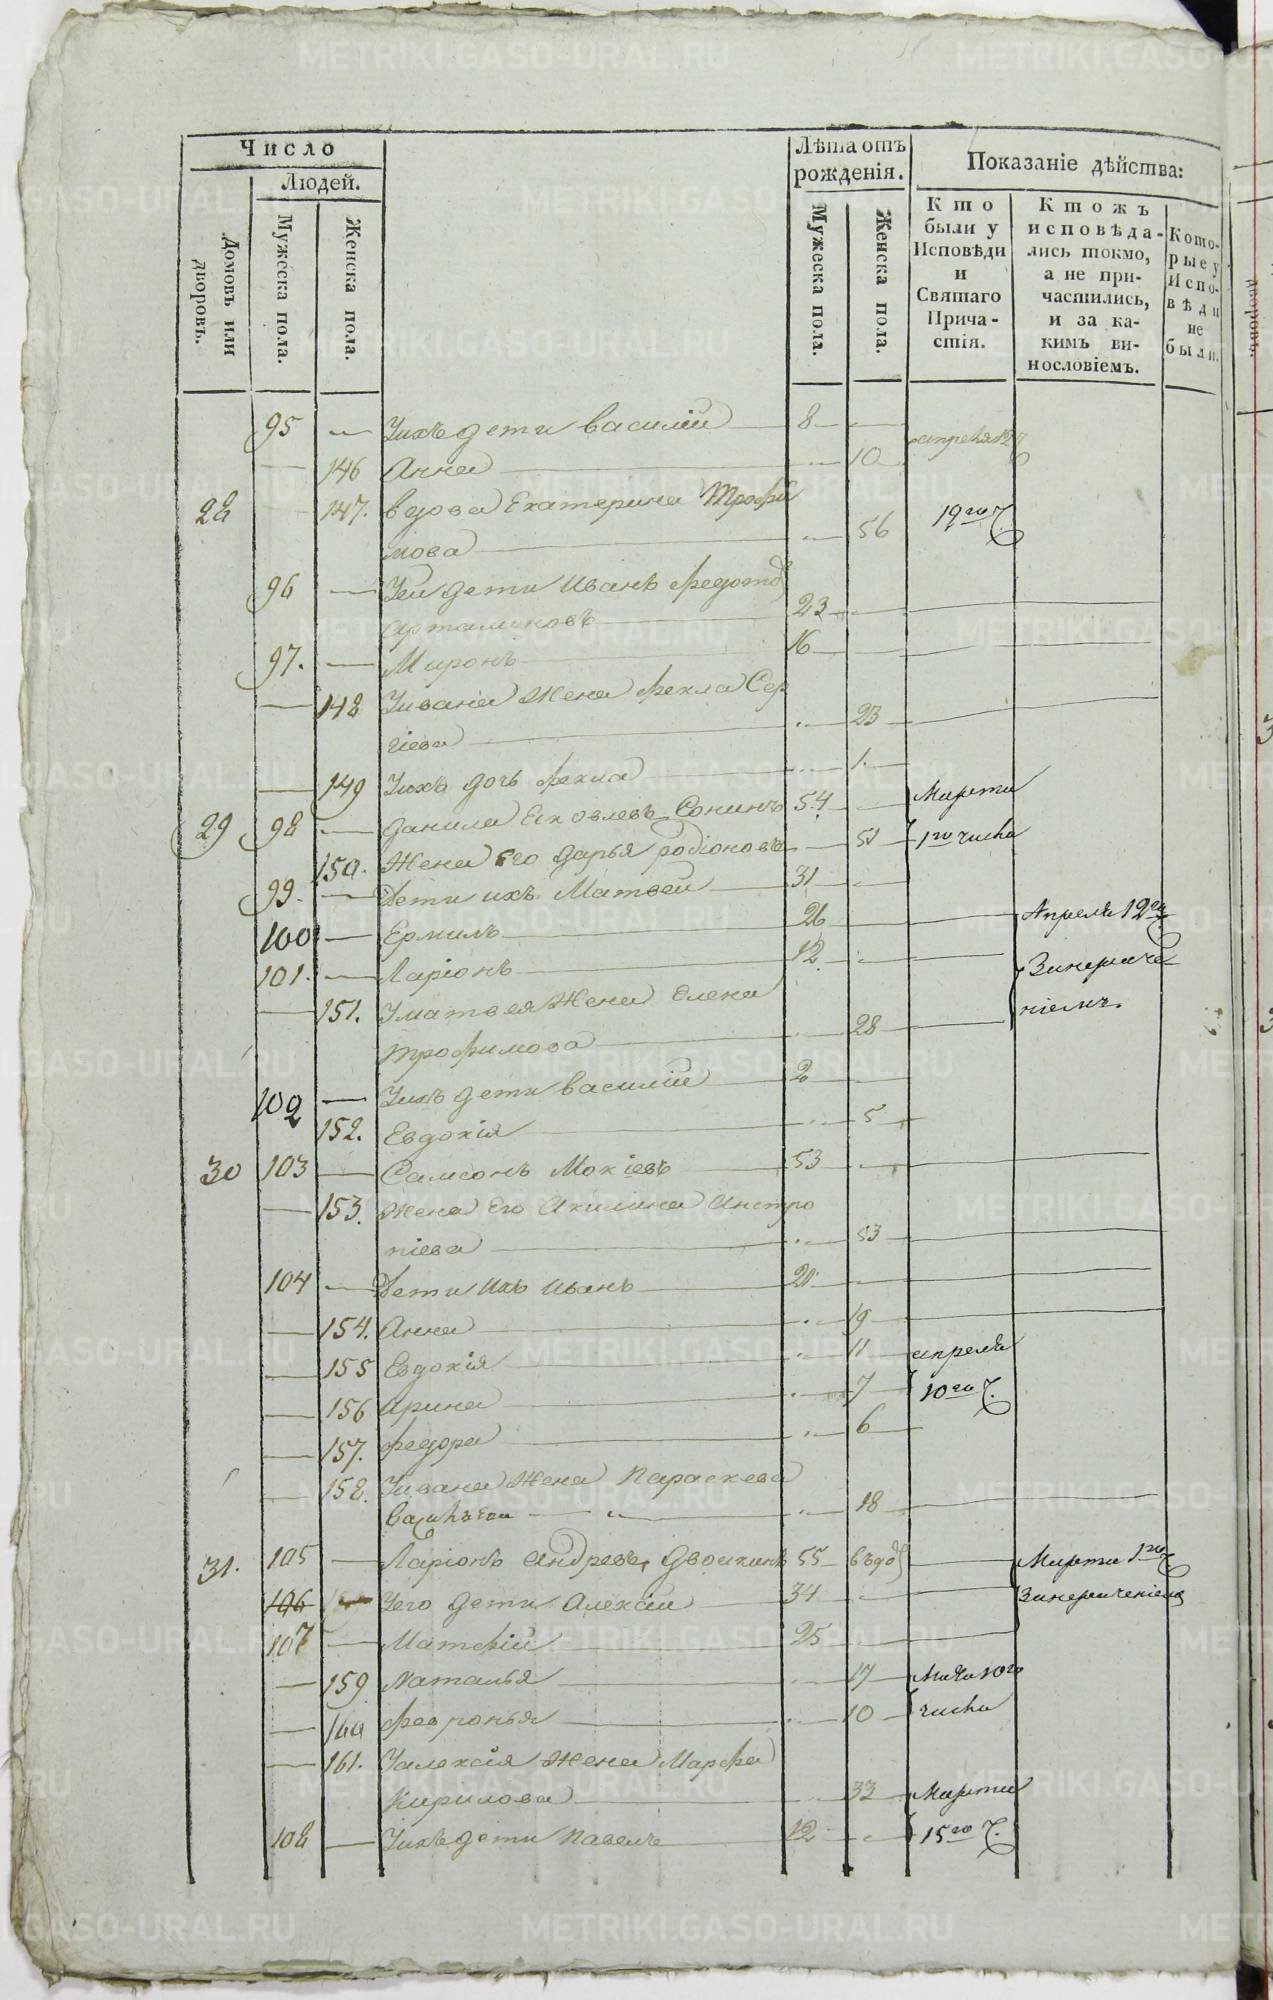 Число
Людей.
Домовъ или дворовъ.
Мужеска пола.
Женска пола.
Лѣта отъ рожденія.
Мужеска пола.
Женска пола.
Показаніе дѣйства:
Кто были у Исповѣди и Святаго Причастія.
Ктожъ исповѣдались токмо, а не причастились, и за какимъ винословіемъ.
Которые у Исповѣди не были.
95 — Уихъ дети Василій 8 —
— 146 Анна 10 апреля
28 — 147. вдова Екатерина Трофи
мова 56 19го ч.
96 — Уеи дети Иванъ Федотовъ
Артамоновъ 23 —
97. — Миронъ 16 —
— 148 Уивана Жена Фекла Сер
гіева 23
— 149 Уихъ дочь Фекла 1
29 98 — Данила Ековлевъ Сонинъ 54 — Марта
150. Жена его Дарья родіонова 51 1го числа
99. — Дети ихъ Матвей 31 —
100 — Ермилъ 26 — Апреля 12го
101. — Ларіонъ 12 —
— 151. Уматвея Жена Елена
Трофимова 28
102 — Уихъ дети Василій 2 —
152. Евдокія 5
30 103 — Самсонъ Мокіевъ 53 —
— 153. Жена его Акилина Антро
піева 53
104 — Дети Ихъ Иванъ 20 —
— 154. Анна 19
— 155 Евдокія 11 апреля
— 156 Арина 7 10го ч.
— 157. Федора 6
— 158. Уивана Жена Параскева
Васильева 18
31. 105 — Ларіонъ Андревъ, Двоикинъ 55 вдов Марта 1го
106 — Уего дети Алексей 34 —
107 — Матфій 25 —
— 159 Наталья 17
— 160 Февронья 10 числа
— 161. Уалексія Жена Марфа
Кирилова 33 Марта
108 — Уихъ дети Павелъ 12 — 15го ч.
METRIKI.GASO-URAL.RU